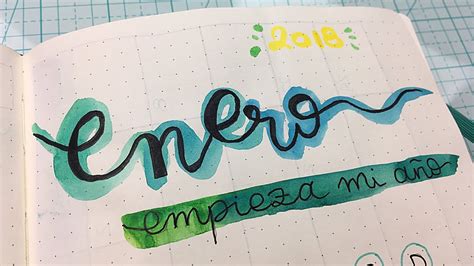 2018
enero
empieza mi año